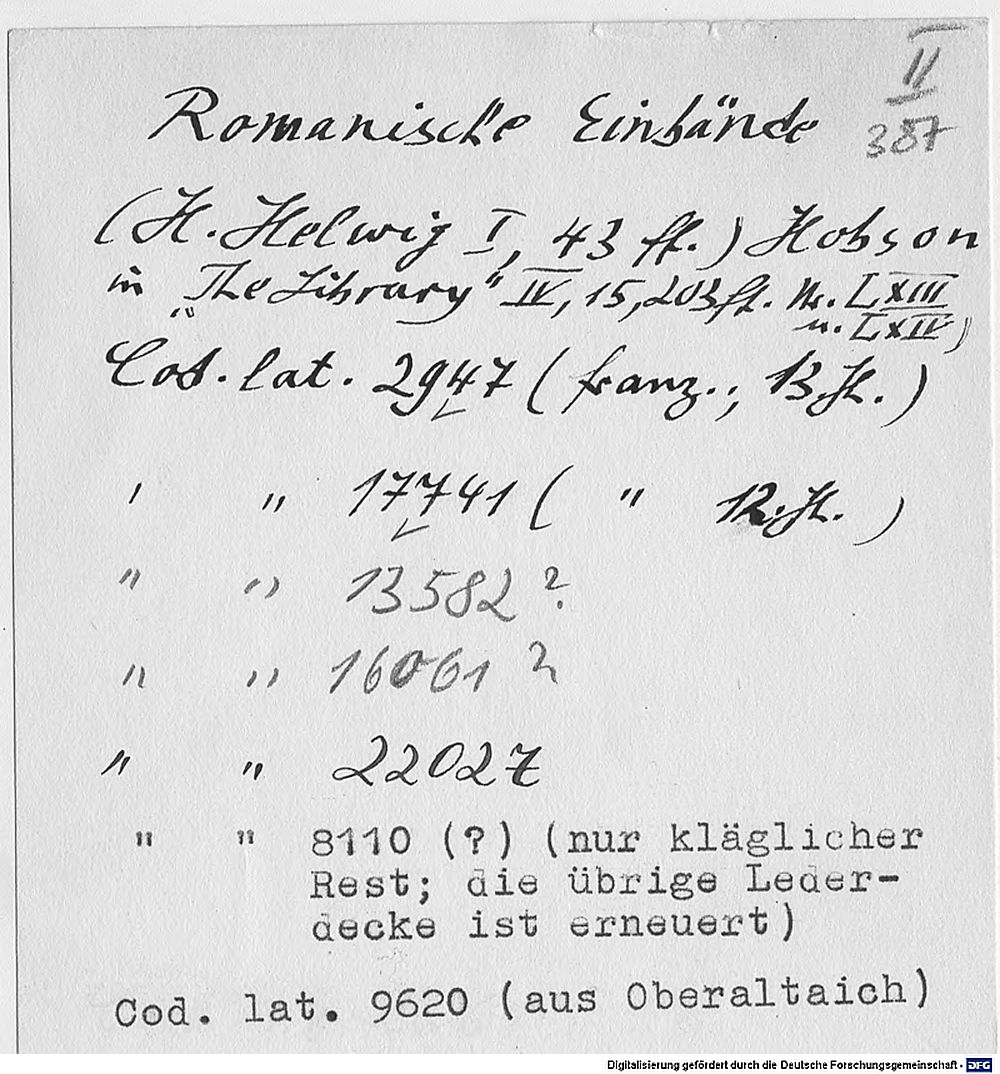 II
387
Romanische Einbände
(H. Helwig I, 43 ff.) Hobson
in "The Library" IV, 15, 203 ff. Nr. LXIII
u. LXIV)
Cod. lat. 2947 (franz.; 13. Jh.)
" " 17741 ( " 12. Jh. )
" " 13582 ?
" " 16061 ?
" " 22027
" " 8110 (?) (nur kläglicher
Rest; die übrige Leder-
decke ist erneuert)
Cod. lat. 9620 (aus Oberaltaich)
Digitalisierung gefördert durch die Deutsche Forschungsgemeinschaft - DFG